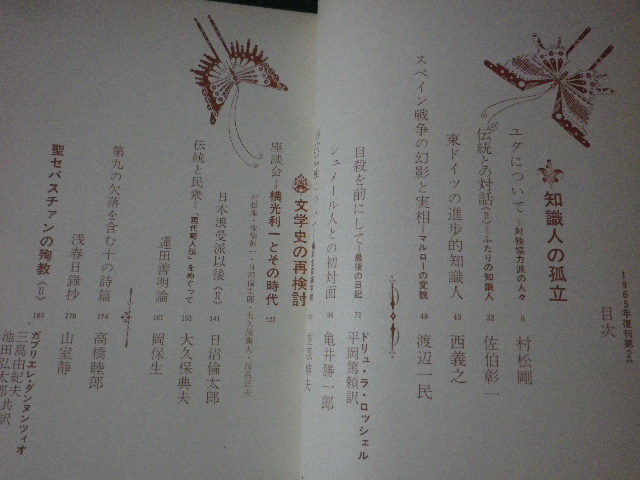 1965年復刊第2号
目次
知識人の孤立
ユダについて―対独協力派の人々 6 村松剛
伝統との対話(II)―ふたりの知識人 32 佐伯彰一
東ドイツの進歩的知識人 40 西義之
スペイン戦争の幻影と実相―マルローの変貌 48 渡辺一民
自殺を前にして―最後の日記 71 ドリュ・ラ・ロッシェル
平岡篤頼訳
シュメール人との初対面 96 亀井勝一郎
文学史の再検討
座談会―横光利一とその時代 122
日本浪曼派以後(II) 141 日沼倫太郎
伝統と民衆―「現代畸人伝」をめぐって 152 大久保典夫
蓮田善明論 161 岡保生
第九の欠落を含む十の詩篇 174 高橋睦郎
浅春日録抄 178 山室静
聖セバスチァンの殉教(II) 185 ガブリエレ・ダンヌンツィオ
三島由紀夫
池田弘太郎共訳